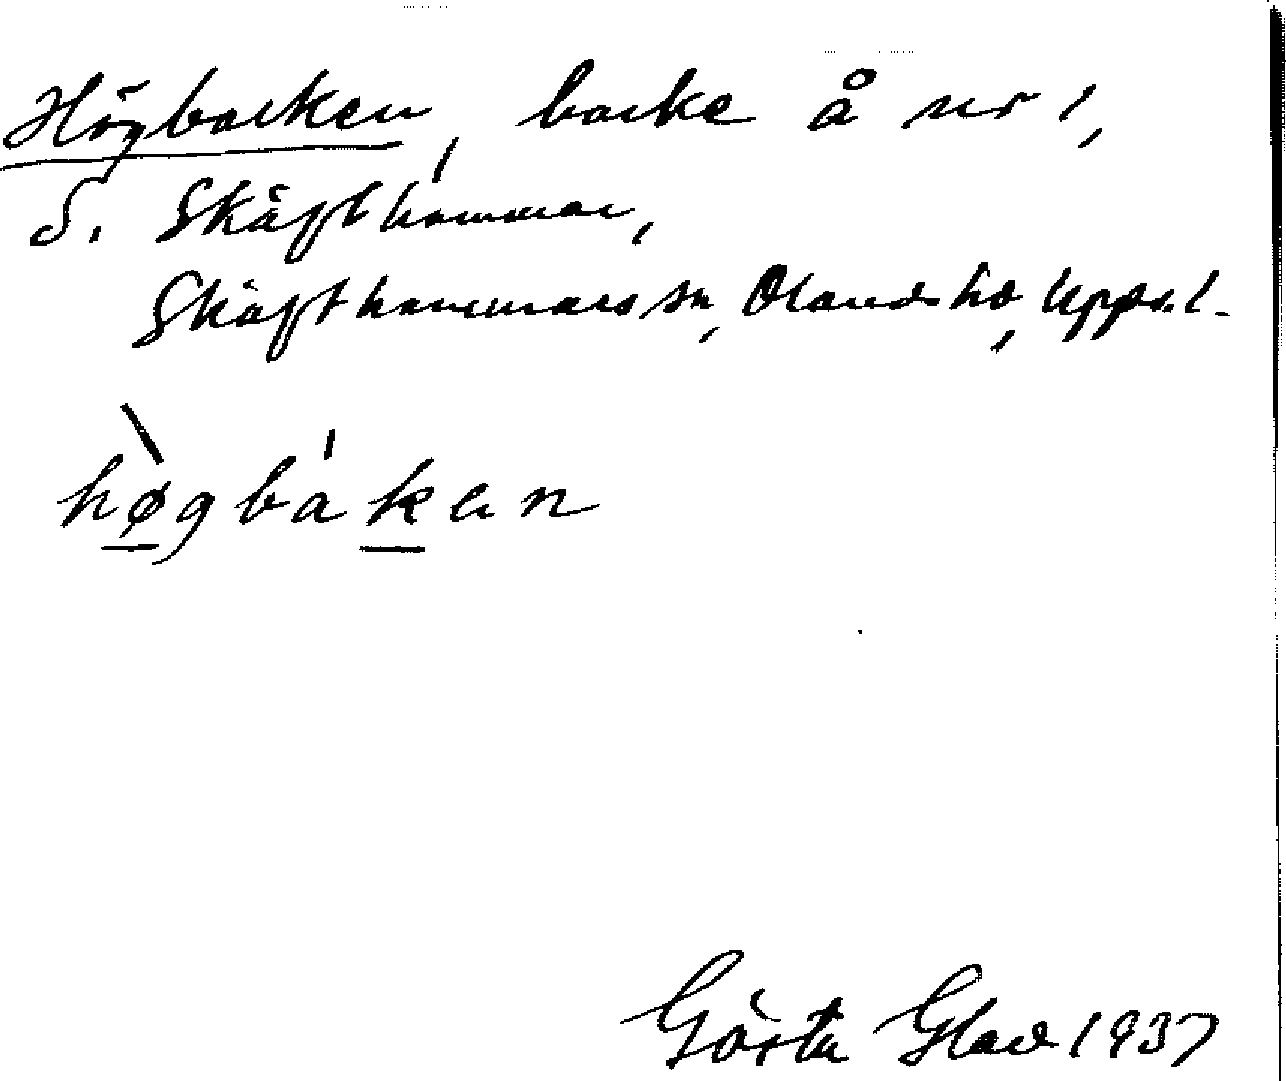 Högbacken, backe å nr 1,
S. Skäfthammar,
Skäfthammars sn, Olands hd, Upps. l.
hø̀gbákan
Gösta Glad 1937